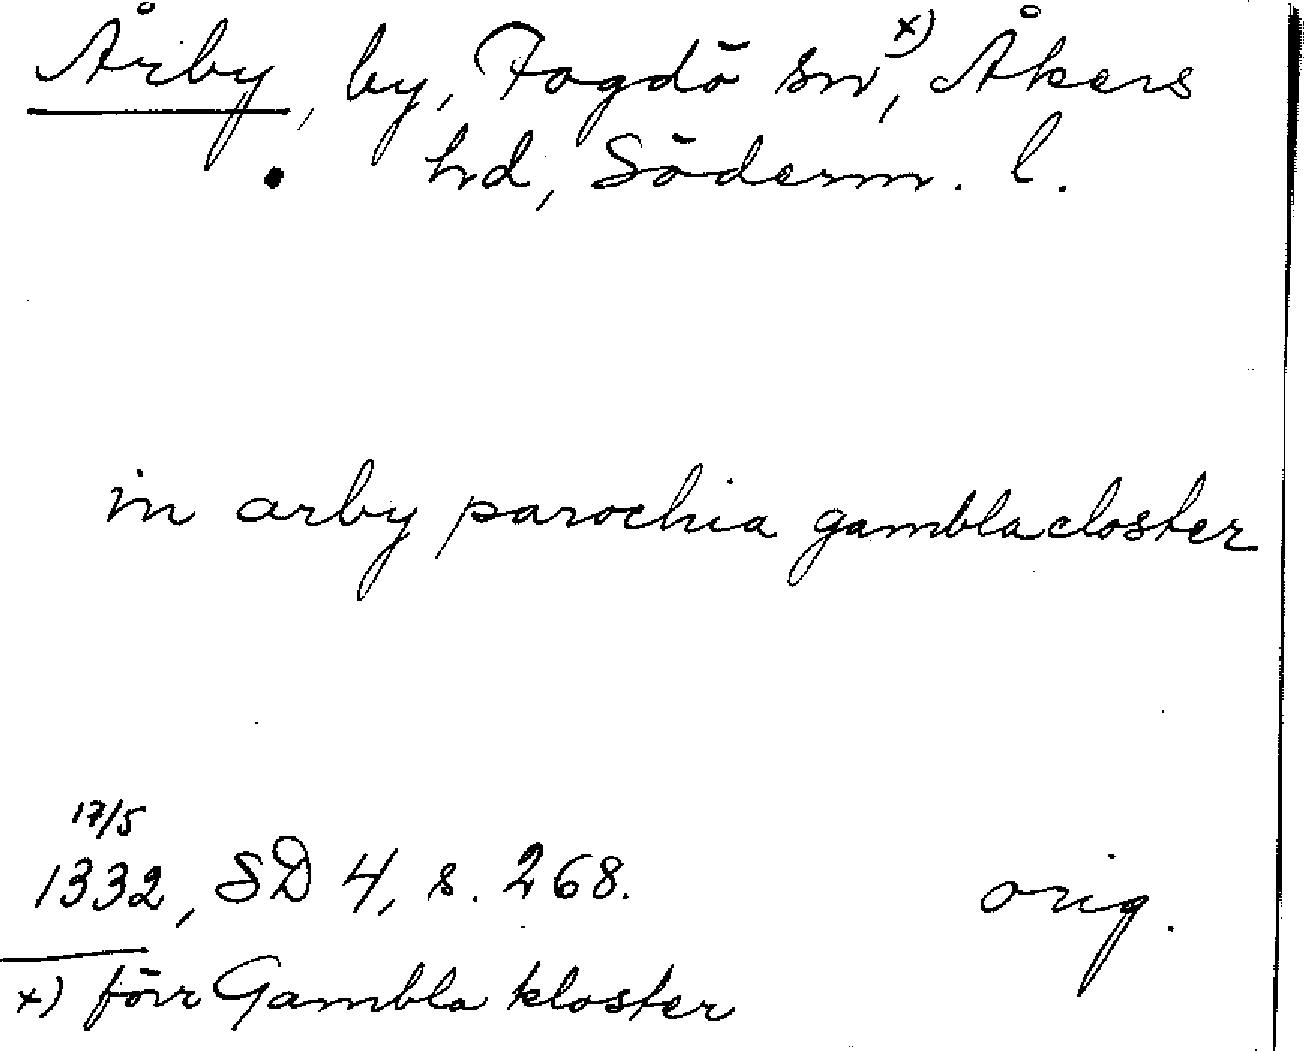 Årby, by, Fogdö sn x), Åkers
hd, Söderm. l.
in arby parochia gamblacloster
17/5
1332, SD 4, s. 268. orig.
x) förr Gambla kloster